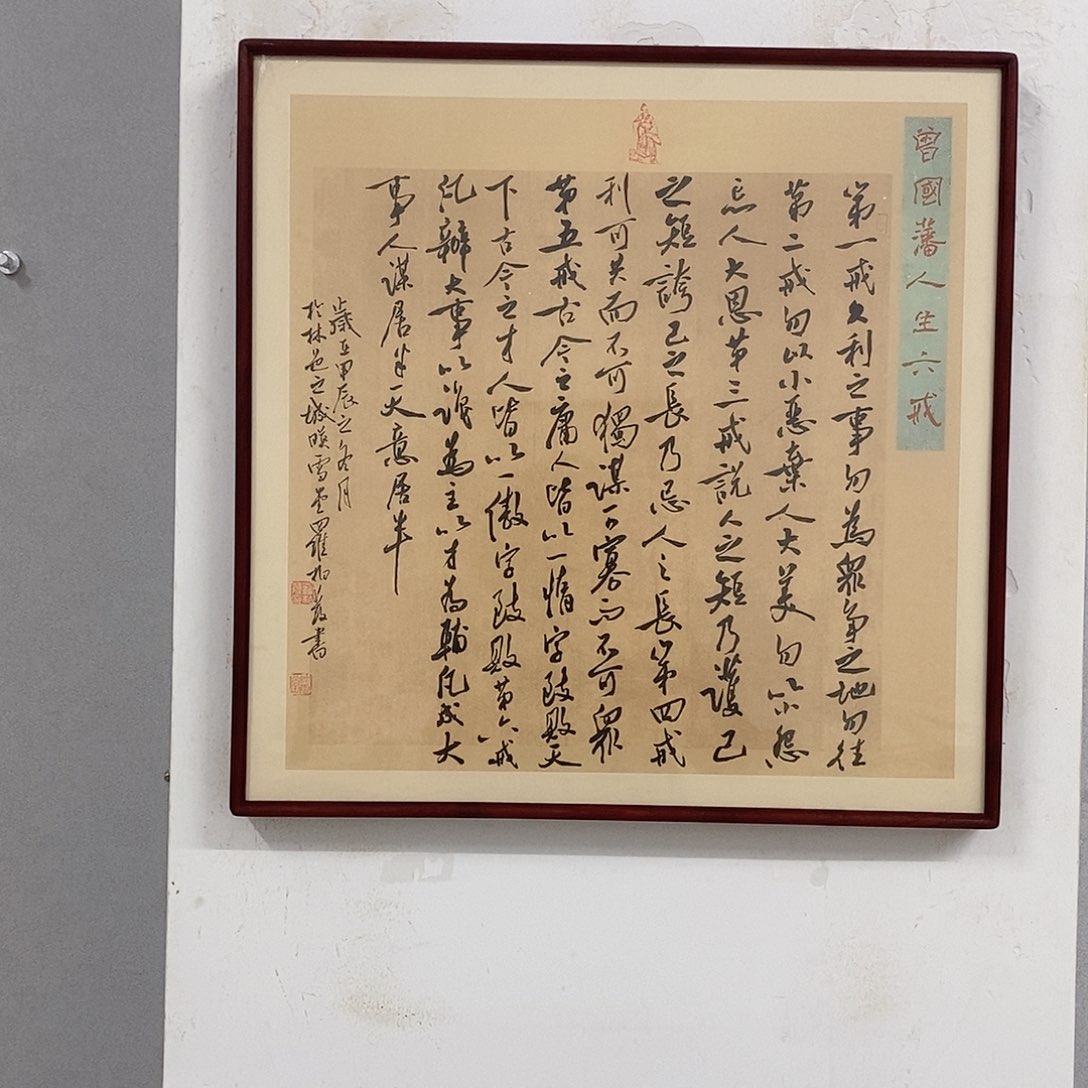 曾國藩人生六戒
第一戒久利之事勿為眾爭之地勿往
第二戒勿以小惡棄人大美勿以小怨
忘人大恩第三戒説人之短乃護己
之短誇己之長乃忌人之長第四戒
利可共而不可獨謀可寡而不可眾
第五戒古今之庸人皆以一惰字致敗天
下古今之才人皆以一傲字致敗第六戒
凡辦大事以識為主以才為輔凡成大
事人謀居半天意居半
歲在甲辰之冬月
於林邑之城映雪堂羅柏書